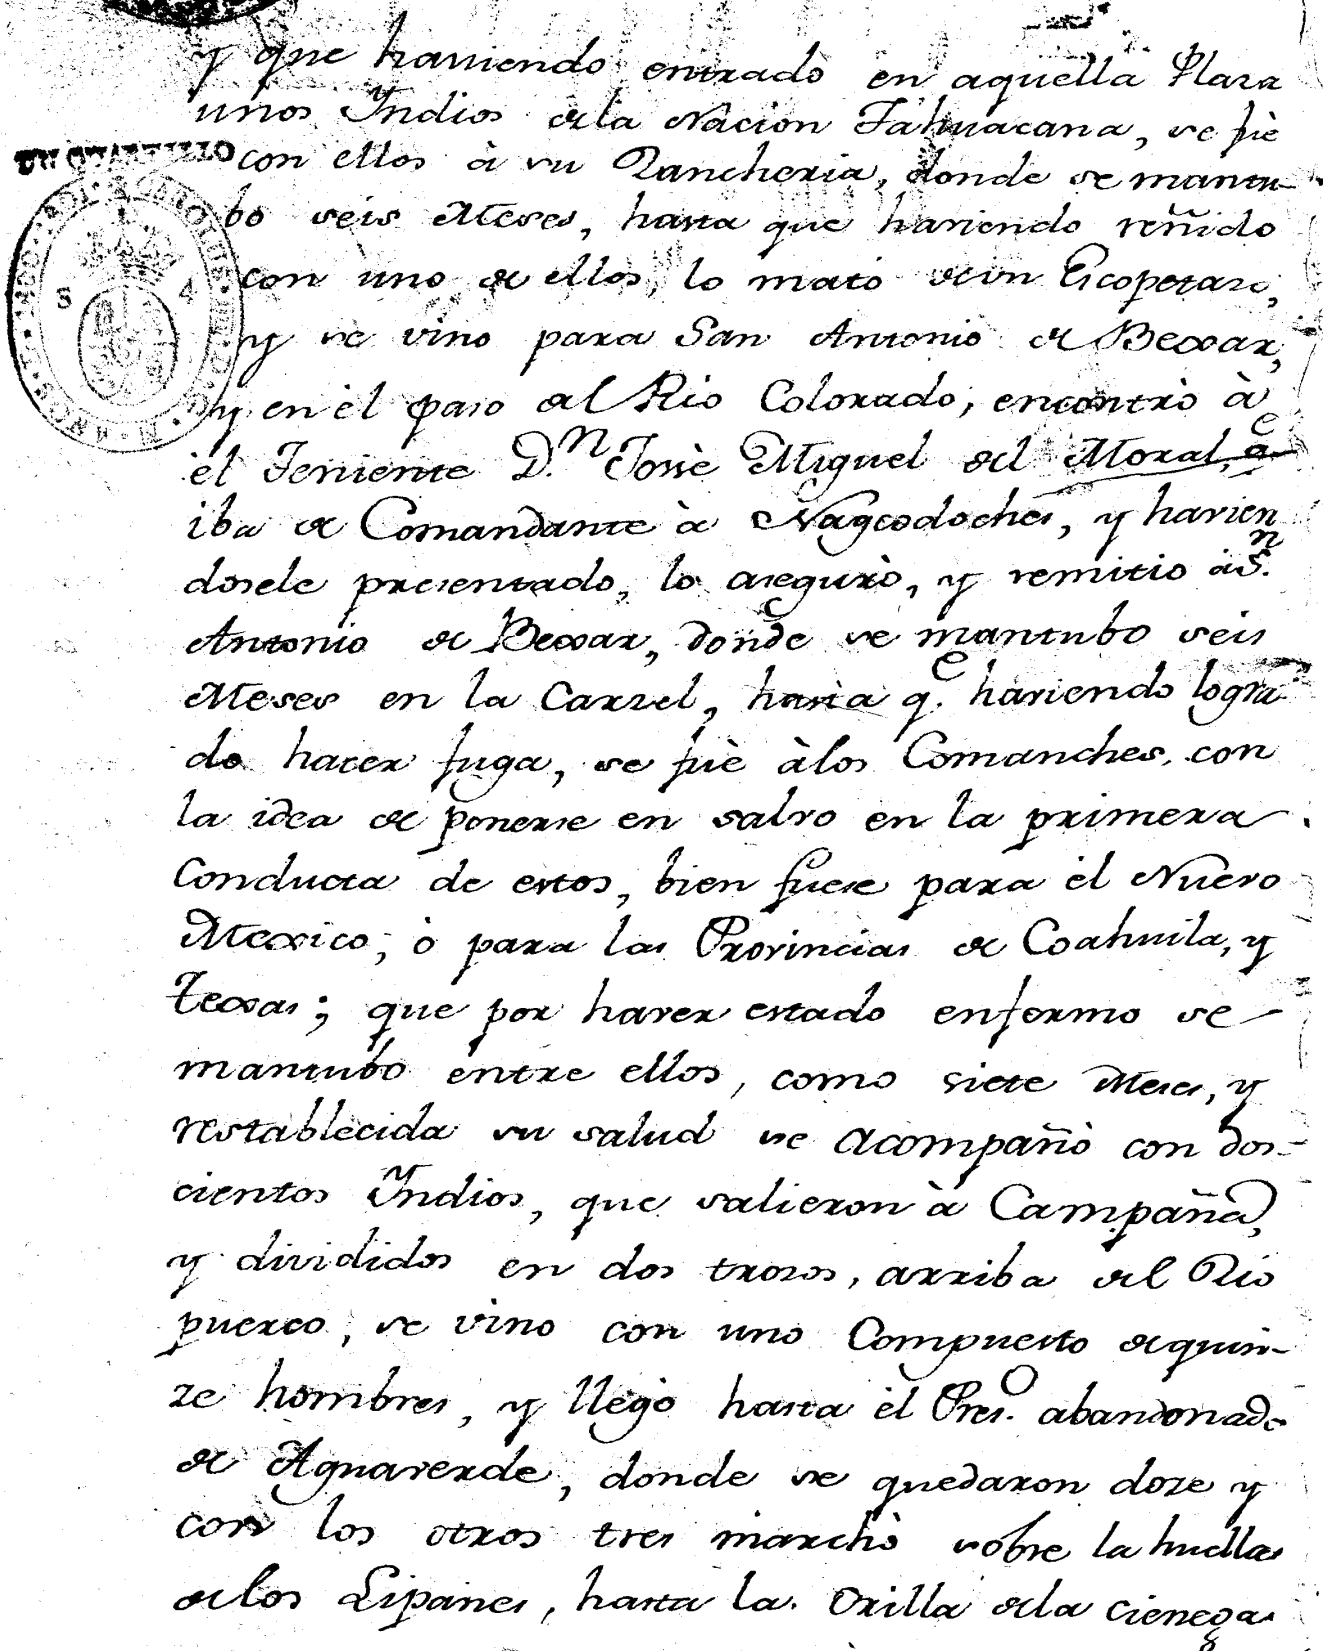 y que haviendo entrado en aquella Plaza
unos Indios de la Nacion Tahuacana, se fuè
UN QUARTILLO
con ellos à su Rancheria, donde se mantu-
bo seis Meses, hasta que haviendo reñido
con uno de ellos, lo matò de un Escopetazo,
y se vino para San Antonio de Bexar,
y en èl paso del Rio Colorado, encontrò à
èl Teniente D.n Josè Miguel del Moral, q.e
iba de Comandante à Nagcodoches, y havien
dosele presentado, lo asegurò, y remitio à S.n
Antonio de Bexar, donde se mantubo seis
Meses en la Carzel, hasta q.e haviendo logra
do hacer fuga, se fuè à los Comanches, con
la idea de ponerse en salvo en la primera
Conducta de estos, bien fuese para èl Nuevo
Mexico, ò para las Provincias de Coahuila, y
Texas; que por haver estado enfermo se
mantubo entre ellos, como siete Meses, y
restablecida su salud se acompañò con dos-
cientos Indios, que salieron à Campaña,
y divididos en dos trozos, arriba del Rio
puerco, se vino con uno Compuesto de quin-
ze hombres, y llegò hasta èl Pres.o abandonado
de Aguaverde, donde se quedaron doze y
con los otros tres marchò sobre la huella
de los Lipanes, hasta la Orilla de la cienega